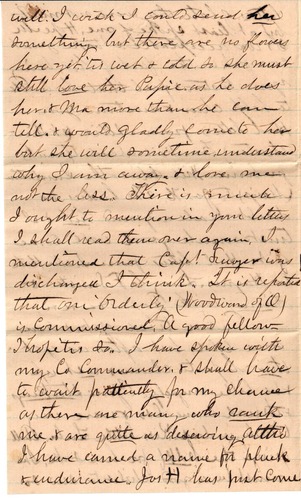 well. I wish I could send her
something but there are no flowers
here yet tis wet & cold so she must
still love her Papie as he does
her & Ma more than he can
tell & would gladly come to her
but she will sometime understand
why I am away & love me
not the less. There is much
I ought to mention in your letters
I shall read them over again, I
mentioned that Capt was
discharged I think. It is reported
that our Orderly (Woodward of O)
is Commissioned, A good fellow
I hope tis so, I have spoken with
my Co Commander & shall have
to wait patiently for my chance
as there are many who rank
me & are quite as deserving altho
I have earned a name for pluck
& endurance. Jos H has just come